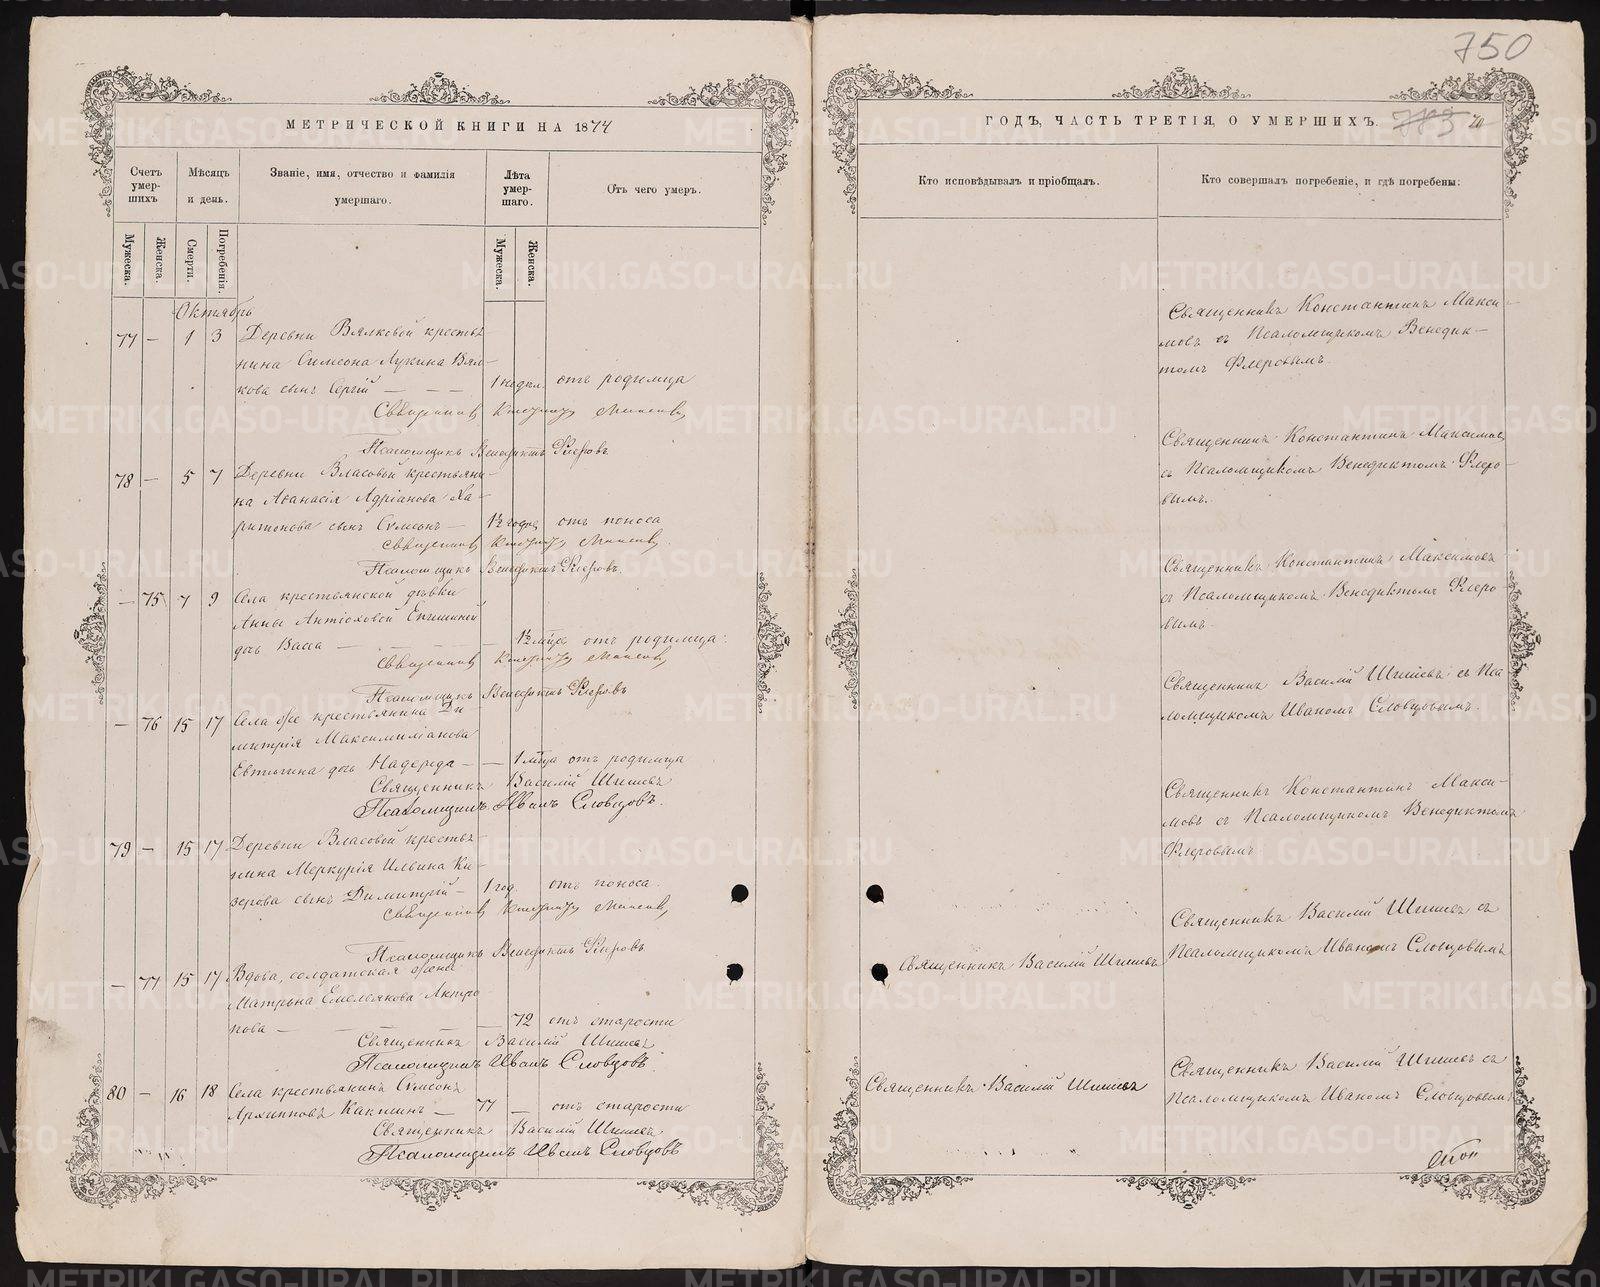 750
МЕТРИЧЕСКОЙ КНИГИ НА 1874
ГОДЪ, ЧАСТЬ ТРЕТІЯ, О УМЕРШИХЪ.
Счетъ умер-шихъ
Мѣсяцъ и день.
Званіе, имя, отчество и фамилія умершаго.
Лѣта умер-шаго.
Отъ чего умеръ.
Кто исповѣдывалъ и пріобщалъ.
Кто совершалъ погребеніе, и гдѣ погребены:
Мужеска.
Женска.
Смерти.
Погребенія.
Мужеска.
Женска.
Октябрь
77 — 1 3 Деревни Вялковой крестья-
нина Симеона Лукина Вял-
кова сынъ Сергій — — — 1 недѣл. отъ родимца
Священникъ Константинъ Максимовъ
Псаломщикъ Венедиктъ Флеровъ
Священникъ Константинъ Макси-
мовъ съ Псаломщикомъ Венедик-
томъ Флеровымъ.
78 — 5 7 Деревни Власовой крестьяни-
на Аѳанасія Адріанова Ха-
ритонова сынъ Сѵмеонъ — 1½ года отъ поноса
Священникъ Константинъ Максимовъ
Псаломщикъ Венедиктъ Флеровъ.
Священникъ Константинъ Максимовъ
съ Псаломщикомъ Венедиктомъ Флеро-
вымъ.
— 75 7 9 Села крестьянской дѣвки
Анны Антіоховой
дочь Васса — — — 1½ мѣца отъ родимца.
Священникъ Константинъ Максимовъ
Псаломщикъ Венедиктъ Флеровъ
Священникъ Константинъ Максимовъ
съ Псаломщикомъ Венедиктомъ Флеро
вымъ.
— 76 15 17 Села же крестьянина Ди
митрія Максимиліанова
Евтюгина дочь Надежда — — 1 мѣца отъ родимца
Священникъ Василій Шишевъ
Псаломщикъ Иванъ Словцовъ.
Священникъ Василій Шишевъ съ Пса
ломщикомъ Иваномъ Словцовымъ.
79 — 15 17 Деревни Власовой крестья-
нина Меркурія Ильина Ки-
зерова сынъ Димитрій — 1 год. отъ поноса.
Священникъ Константинъ Максимовъ
Псаломщикъ Венедиктъ Флеровъ
Священникъ Константинъ Макси-
мовъ съ Псаломщикомъ Венедиктомъ
Флеровымъ.
— 77 15 17 Вдова, солдатская жена
Матрона Емельянова Антро
пова — — — — 72 отъ старости
Священникъ Василій Шишевъ
Псаломщикъ Иванъ Словцовъ.
Священникъ Василій Шишевъ
Священникъ Василій Шишевъ съ
Псаломщикомъ Иваномъ Словцовымъ
80 — 16 18 Села крестьянинъ Сѵмеонъ
Архиповъ Какшинъ — 77 — отъ старости
Священникъ Василій Шишевъ
Псаломщикъ Иванъ Словцовъ
Священникъ Василій Шишевъ
Священникъ Василій Шишевъ съ
Псаломщикомъ Иваномъ Словцовымъ
METRIKI.GASO-URAL.RU